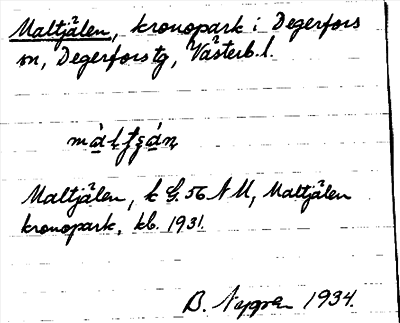 Maltjälen, kronopark i Degerfors
sn, Degerfors tg, Västerb. l.
Maltjälen, k G. 56 N M, Maltjälen
kronopark, kb. 1931.
B. Nygren 1934.